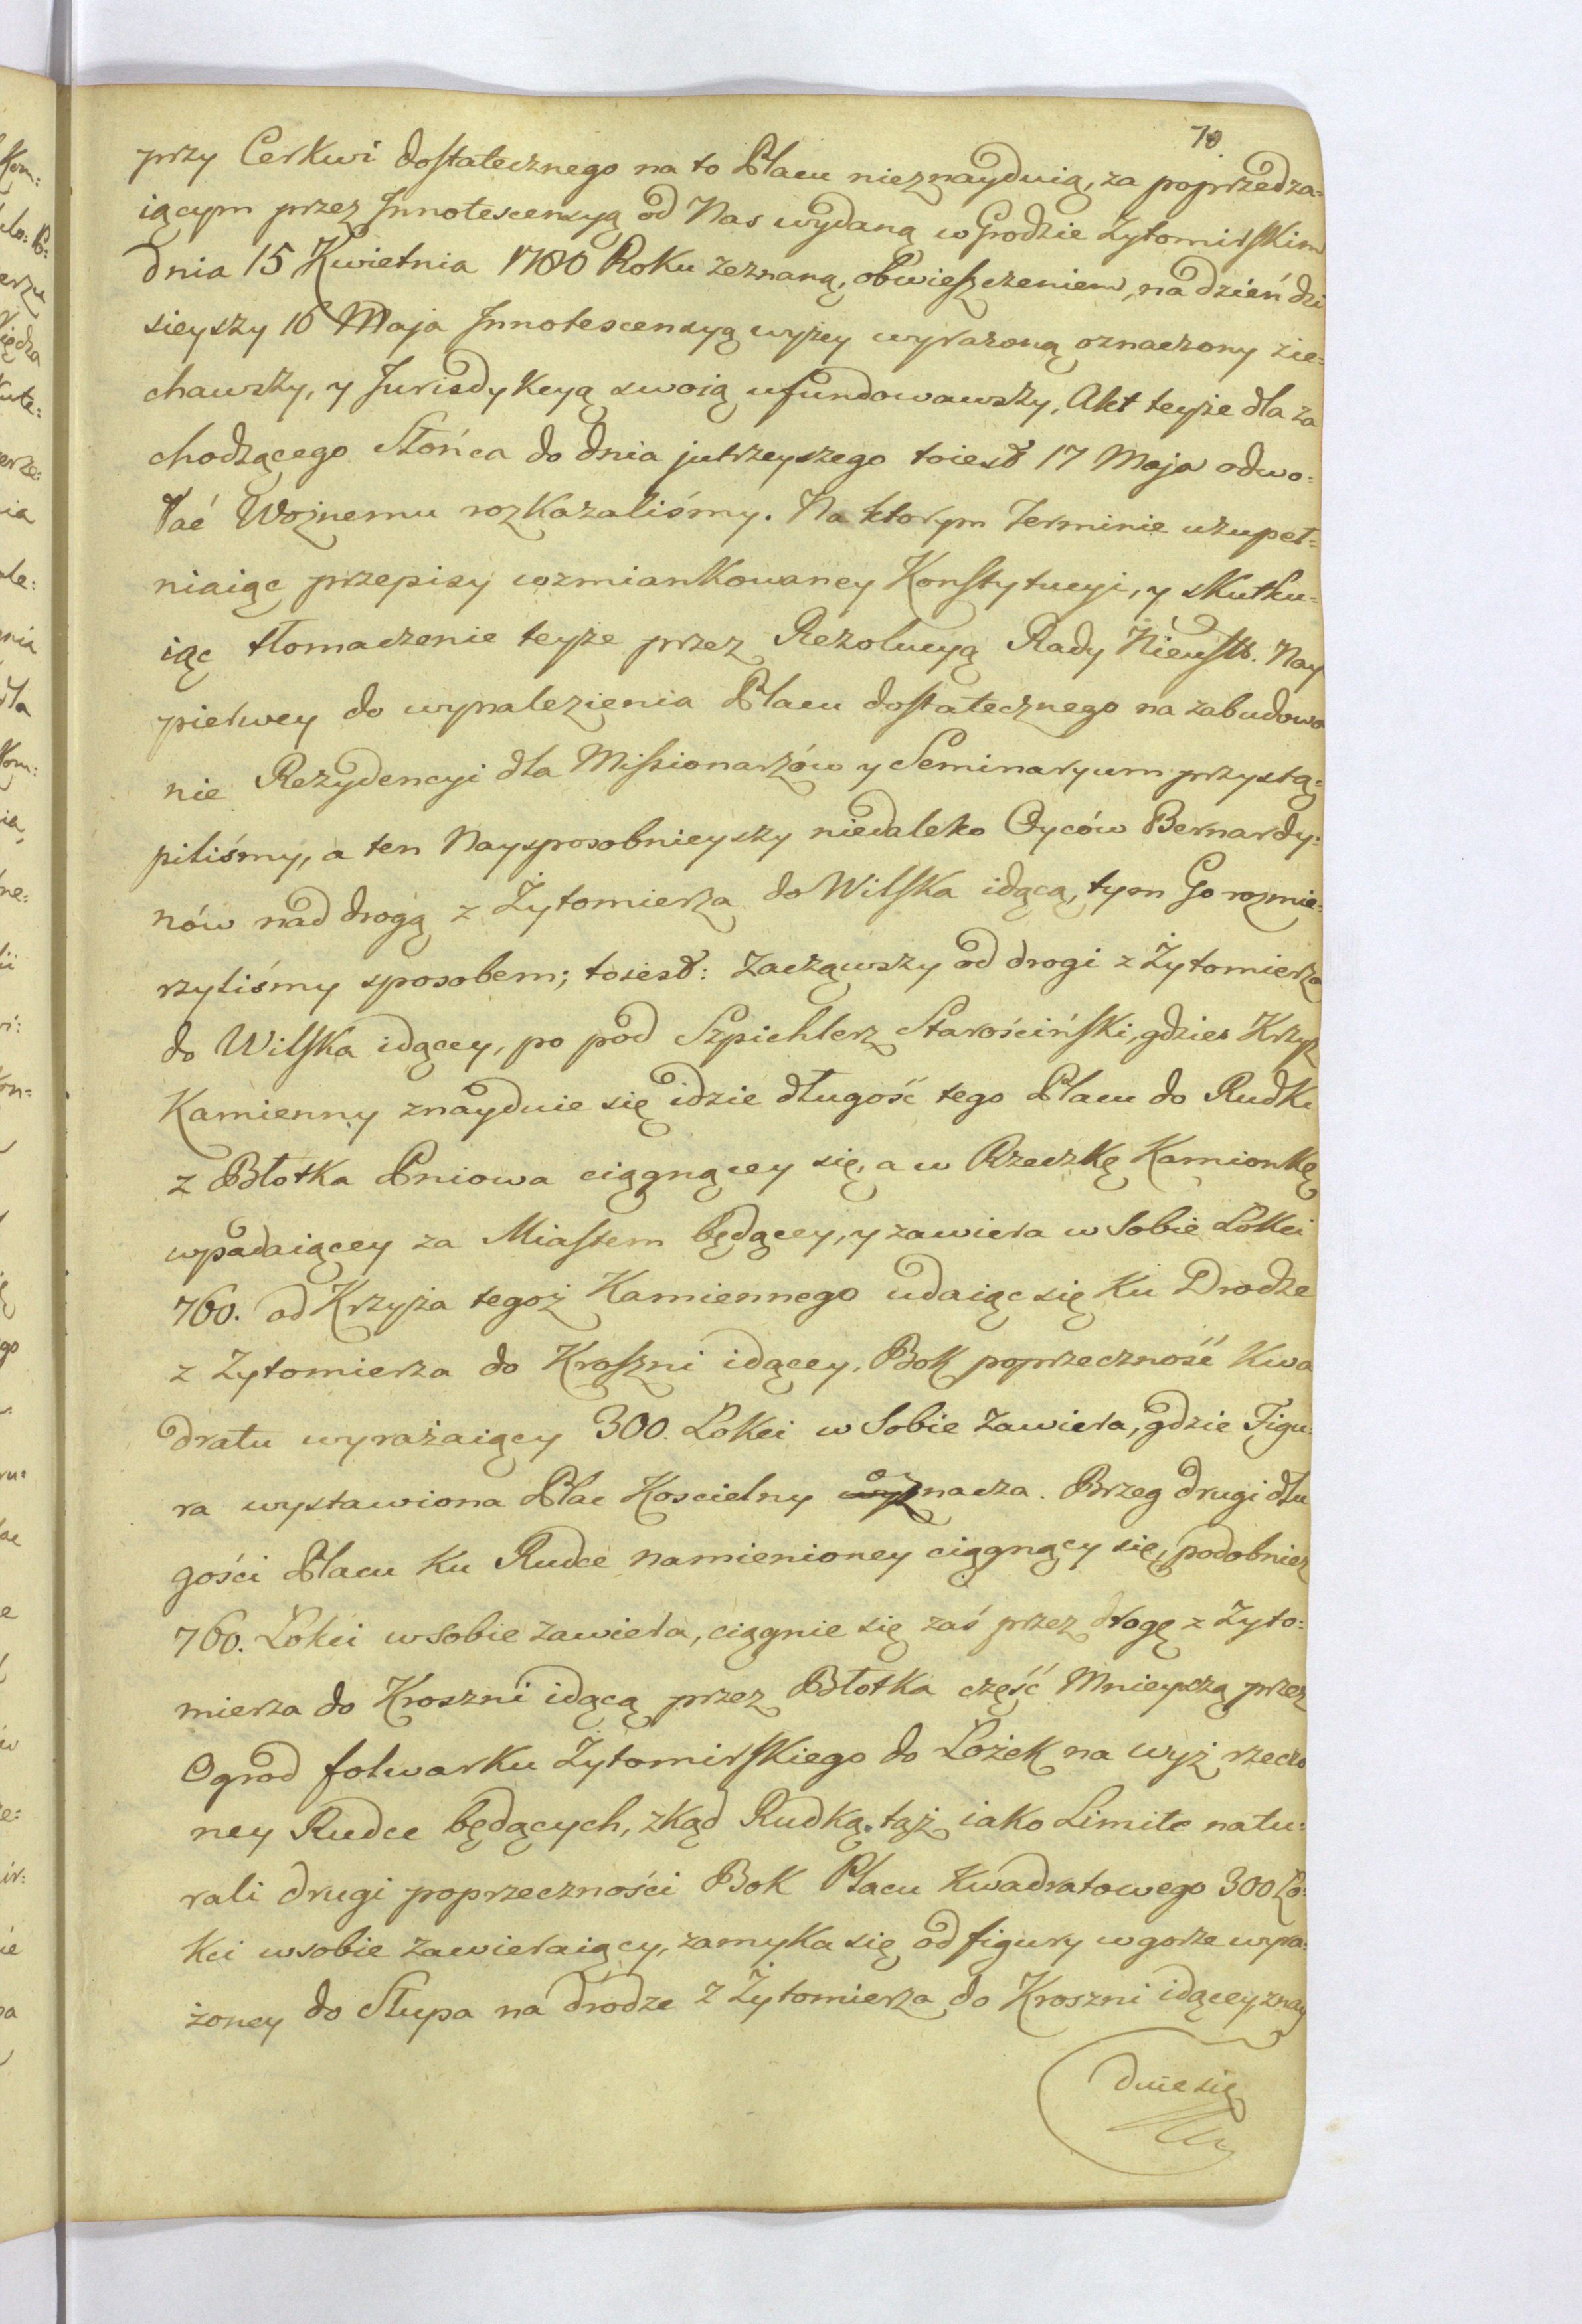 70.
przy Cerkwi dostatecznego na to Placu nieznayduią, za poprzedza=
iącym przez Innotescencyą od Nas wydaną w Grodzie Żytomirskim
dnia 15 Kwietnia 1780 Roku zeznaną, obwieszczeniem, na dzień dzi
sieyszy 16 Maja Innotescencyą wyżey wyrażoną oznaczony zie=
chawszy, y Jurisdykcyą swoią ufundowawszy, Akt teyże dla za
chodzącego Słońca do dnia jutrzeyszego toiest 17 Maja odwo=
łać Woznemu rozkazaliśmy. Na ktorym Terminie uzupeł=
niaiąc przepisy wzmiankowaney Konstytucyi, y skutku=
iąc tłomaczenie teyże przez Rezolucyą Rady Nieust. Nay
pierwey do wynalezienia Placu dostatecznego na zabudowa
nie Rezydencyi dla Missionarzów y Seminaryum przystą=
piliśmy, a ten Naysposobnieyszy niedaleko Oyców Bernardy=
nów nad drogą z Żytomierza do Wilska idącą, tym Go rozmie=
rzyliśmy sposobem; toiest: Zacząwszy od drogi z Żytomierza
do Wilska idącey, po pod Szpichlerz Starościński, gdzie Krzyż
Kamienny znayduie się idzie długość tego Placu do Rudki
z Błotka Pniowa ciągnącey się, a w Rzeczkę Kamionkę
wpadaiącey za Miastem będącey, y zawiera w Sobie Łokci
760. od Krzyża tegoż Kamiennego udaiąc się Ku Drodze
z Zytomierza do Kroszni idącey, Bok poprzeczność Kwa
dratu wyrażaiący 300. Łokci w Sobie zawiera, gdzie Figu=
ra wystawiona Plac Koscielny oznacza. Brzeg drugi dłu
gości Placu Ku Rudce namienioney ciągnący się, podobnież
760. Łokci w sobie zawiera, ciągnie się zaś przez drogę z Żyto=
mierza do Kroszni idącą przez Błotka część Mnieyszą przez
Ogrod folwarku Żytomirskiego do Łożek na wyż rzeczo
ney Rudce będących, zkąd Rudką tąż iako Limite natu=
rali drugi poprzeczności Bok Placu Kwadratowego 300 Ło=
kci w sobie zawieraiący, zamyka się od figury w gorze wyra=
żoney do Słupa na drodze z Żytomierza do Kroszni idącey znay
duie się